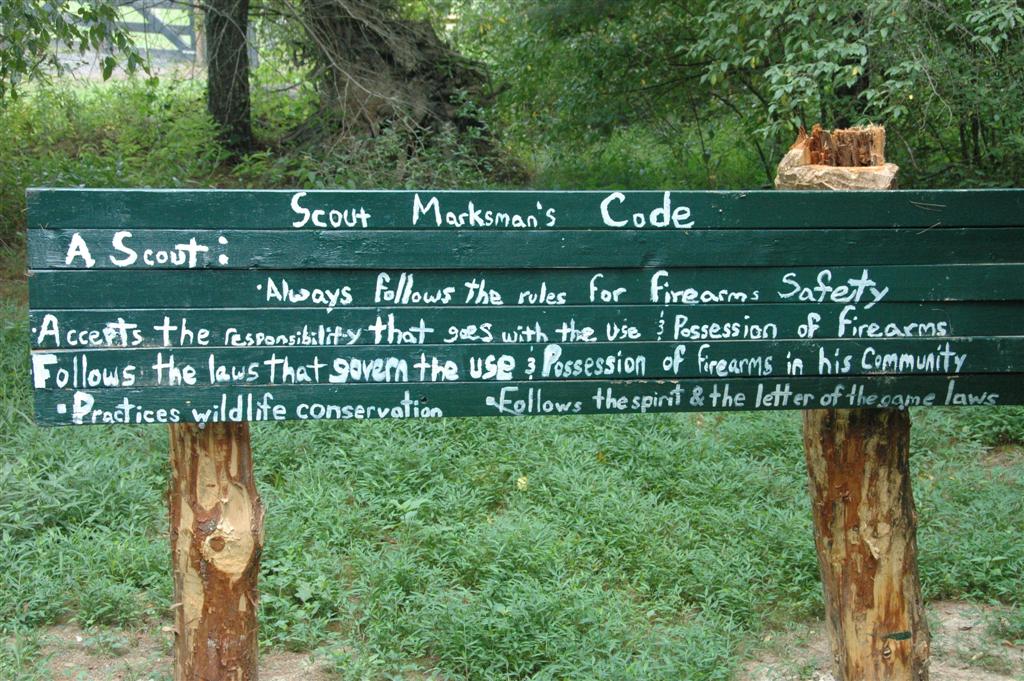 Scout Marksman's Code
A Scout:
·Always follows the rules for firearms Safety
·Accepts the responsibility that goes with the use & Possession of firearms
Follows the laws that govern the use & Possession of firearms in his Community
·Practices wildlife conservation ·Follows the spirit & the letter of the game laws